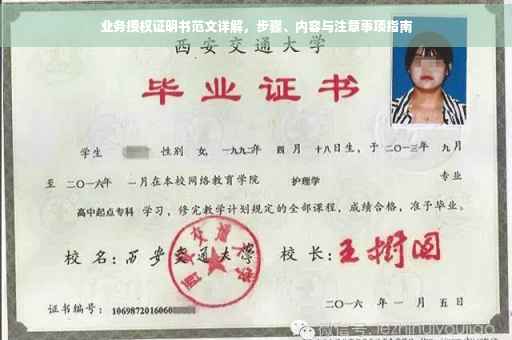 业务授权证明书范文详解，步骤、内容与注意事项指南
西安交通大学
毕业证书
学生 性别 女，一九九二年 四 月 十八日生，于 二〇一三年 九月
至 二〇一六年 一月在本校网络教育学院 护理学 专业
高中起点专科 学习，修完教学计划规定的全部课程，成绩合格，准予毕业。
校 名：西安交通大学 校 长：王树国
西安交通大学
证书编号：1069872016060
二〇一六 年 一 月 五 日
微信号: jiezhinuiyoujiao